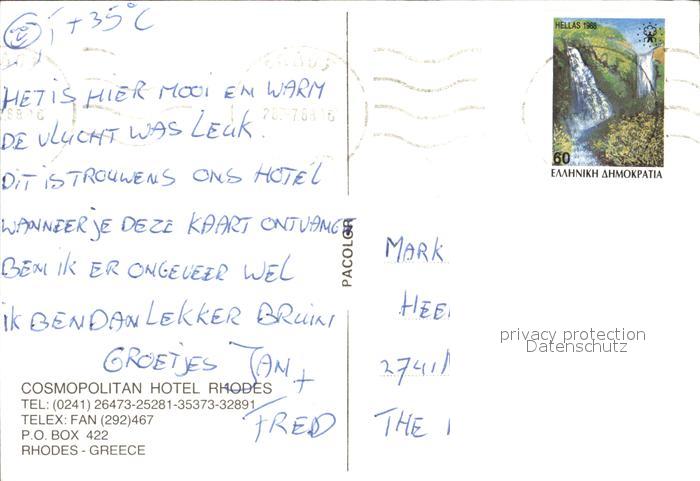 +35°C
HET IS HIER MOOI EN WARM
DE VLUCHT WAS LEUK.
DIT IS TROUWENS ONS HOTEL
WANNEER JE DEZE KAART ONTVANGT
BEN IK ER ONGEVEER WEL
IK BEN DAN LEKKER BRUIN!
GROETJES JAN +
FRED
COSMOPOLITAN HOTEL RHODES
TEL: (0241) 26473-25281-35373-32891
TELEX: FAN (292)467
P.O. BOX 422
RHODES - GREECE
PACOLOR
HELLAS 1988
60
ΕΛΛΗΝΙΚΗ ΔΗΜΟΚΡΑΤΙΑ
MARK
HEE
2741
THE
privacy protection
Datenschutz